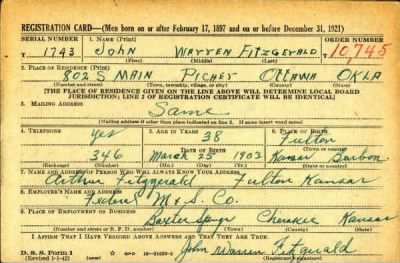 REGISTRATION CARD—(Men born on or after February 17, 1897 and on or before December 31, 1921)
SERIAL NUMBER 1. NAME (Print) ORDER NUMBER
1743 John Warren Fitzgerald 10,745
(First) (Middle) (Last)
2. PLACE OF RESIDENCE (Print)
802 S MAIN Picher Ottawa OKLA
(Number and street) (Town, township, village, or city) (County) (State)
[THE PLACE OF RESIDENCE GIVEN ON THE LINE ABOVE WILL DETERMINE LOCAL BOARD
JURISDICTION; LINE 2 OF REGISTRATION CERTIFICATE WILL BE IDENTICAL]
3. MAILING ADDRESS
Same
(Mailing address if other than place indicated on line 2. If same insert word same)
4. TELEPHONE 5. AGE IN YEARS 6. PLACE OF BIRTH
Yes 38 Fulton
DATE OF BIRTH (Town or county)
346 March 25 1903 Kansas Bourbon
(Exchange) (Number) (Mo.) (Day) (Yr.) (State or country)
7. NAME AND ADDRESS OF PERSON WHO WILL ALWAYS KNOW YOUR ADDRESS
Arthur Fitzgerald Fulton Kansas
8. EMPLOYER'S NAME AND ADDRESS
Federal M & S. Co.
9. PLACE OF EMPLOYMENT OR BUSINESS
Baxter Spgs Cherokee Kansas
(Number and street or R. F. D. number) (Town) (County) (State)
I AFFIRM THAT I HAVE VERIFIED ABOVE ANSWERS AND THAT THEY ARE TRUE.
D. S. S. Form 1 John Warren Fitzgerald
(Revised 1-5-42) (over) (Registrant's signature)